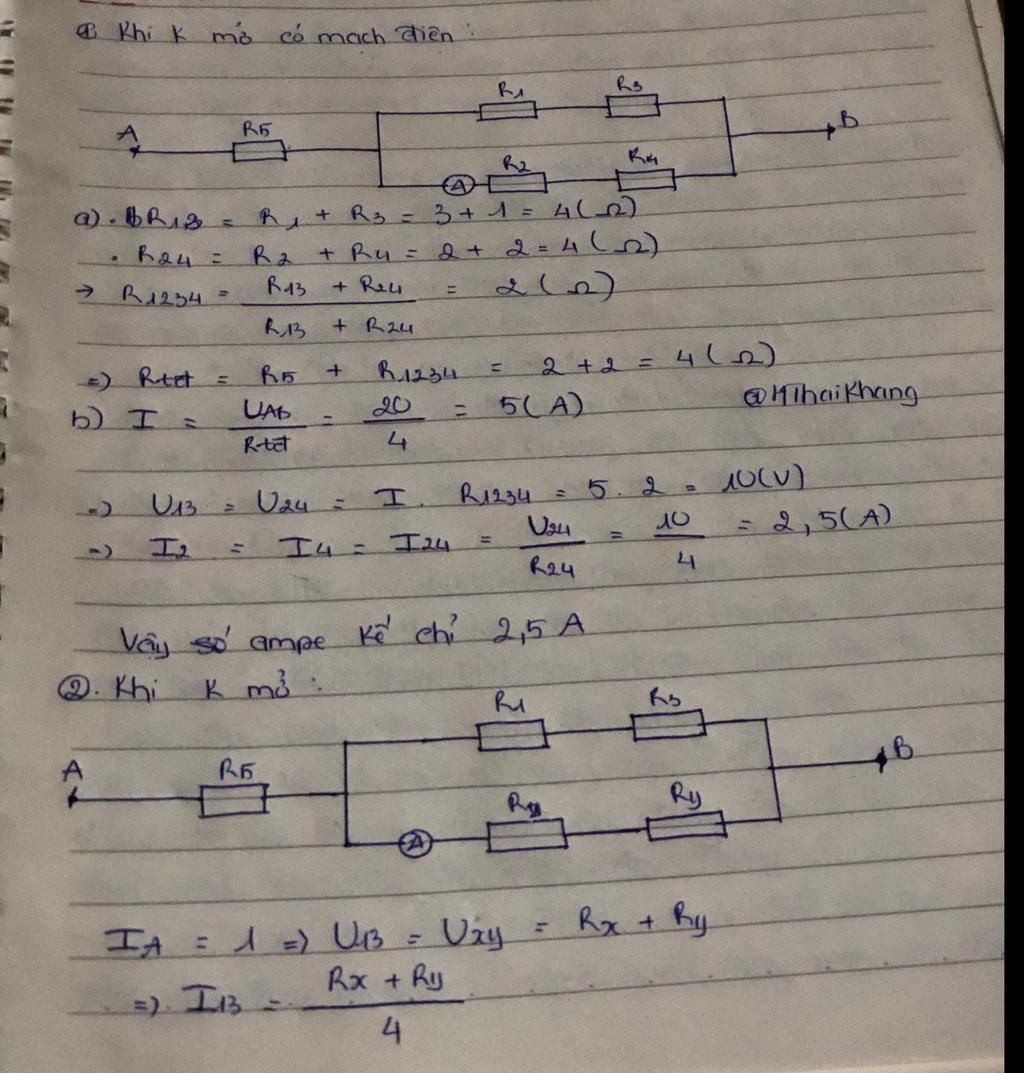 ① Khi K mở có mạch điện :
R1 R3
A R5 B
A R2 R4
a) . R13 = R1 + R3 = 3 + 1 = 4 (Ω)
. R24 = R2 + R4 = 2 + 2 = 4 (Ω)
→ R1234 = (R13 + R24) / (R13 + R24) = 2 (Ω)
=) Rtđ = R5 + R1234 = 2 + 2 = 4 (Ω)
@HThaiKhang
b) I = UAB / Rtđ = 20 / 4 = 5 (A)
=) U13 = U24 = I . R1234 = 5 . 2 = 10 (V)
=) I2 = I4 = I24 = U24 / R24 = 10 / 4 = 2,5 (A)
Vậy số ampe kế chỉ 2,5 A
②. Khi K mở :
R1 R3
A R5 B
A Ry
IA = 1 => U13 = Uxy = Rx + Ry
=). I13 = (Rx + Ry) / 4